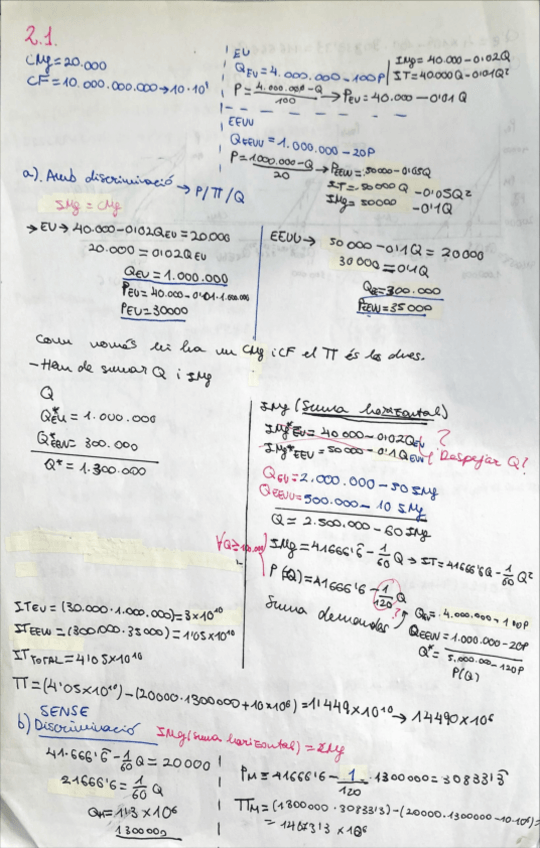 2.1.
CMg = 20.000
CF = 10.000.000.000 → 10·10⁹
EU
Q_EU = 4.000.000 - 100P
P = 4.000.000 - Q / 100 → P_EU = 40.000 - 0'01Q
IMg = 40.000 - 0'02Q
IT = 40000Q - 0'01Q²
EEUU
Q_EEUU = 1.000.000 - 20P
P = 1000.000 - Q / 20 → P_EEUU = 50000 - 0'05Q
IT = 50000Q - 0'05Q²
IMg = 50000 - 0'1Q
a). Amb discriminació → P/Π/Q
IMg = CMg
→ EU → 40.000 - 0'02Q_EU = 20.000
20.000 = 0'02Q_EU
Q_EU = 1.000.000
P_EU = 40.000 - 0'01·1.000.000
P_EU = 30000
EEUU → 50 000 - 0'1Q = 20000
30 000 = 0'1Q
Q_E = 300.000
P_EEUU = 35 000
Com només hi ha un CMg i CF el Π és les dues.
- Hem de sumar Q i IMg
Q
Q*_EU = 1.000.000
Q*_EEUU = 300.000
Q* = 1.300.000
IMg (Suma horizontal)
IMg*_EU = 40 000 - 0'02Q_EU
IMg*_EEUU = 50000 - 0'1Q_EUU
? Despejar Q?
Q_EU = 2.000.000 - 50 IMg
Q_EEUU = 500.000 - 10 IMg
Q = 2.500.000 - 60 IMg
IMg = 41666'6 - 1/60 Q → IT = 41666'6Q - 1/60 Q²
P(Q) = 41666'6 - 1/120 Q
Suma demandas
Q_EU = 4.000.000 - 100P
Q_EEUU = 1.000.000 - 20P
Q* = 5.000.000 - 120P
P(Q)
IT_EU = (30.000·1.000.000) = 3×10¹⁰
IT_EEUU = (300.000·35000) = 1'05×10¹⁰
IT_TOTAL = 4'05×10¹⁰
Π = (4'05×10¹⁰) - (20000·1300000 + 10×10⁶) = 1'449×10¹⁰ → 14490×10⁶
SENSE
b) Discriminació IMg (suma horizontal) = IMg
41.666'6 - 1/60 Q = 20000
21666'6 = 1/60 Q
Q_M = 1'3×10⁶
1300000
P_M = 41666'6 - 1/120 · 1300000 = 30833'3
Π_M = (1300000·30833'3) - (20000·1300000 - 10·10⁶) =
= 14073'3 ×10⁶